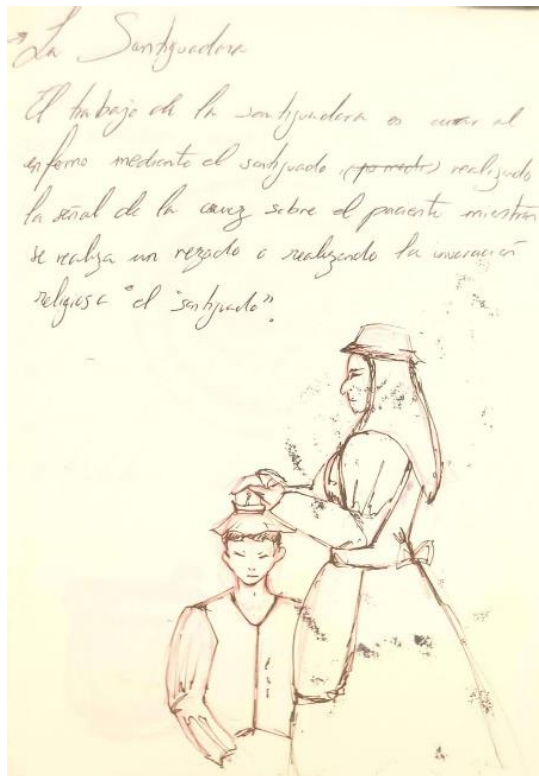 → La Santiguadora
El trabajo de la santiguadora es curar al
enfermo mediante el santiguado, (por medio) realizando
la señal de la cruz sobre el paciente mientras
se realiza un rezado o realizando la invocación
religiosa "el "santiguado".